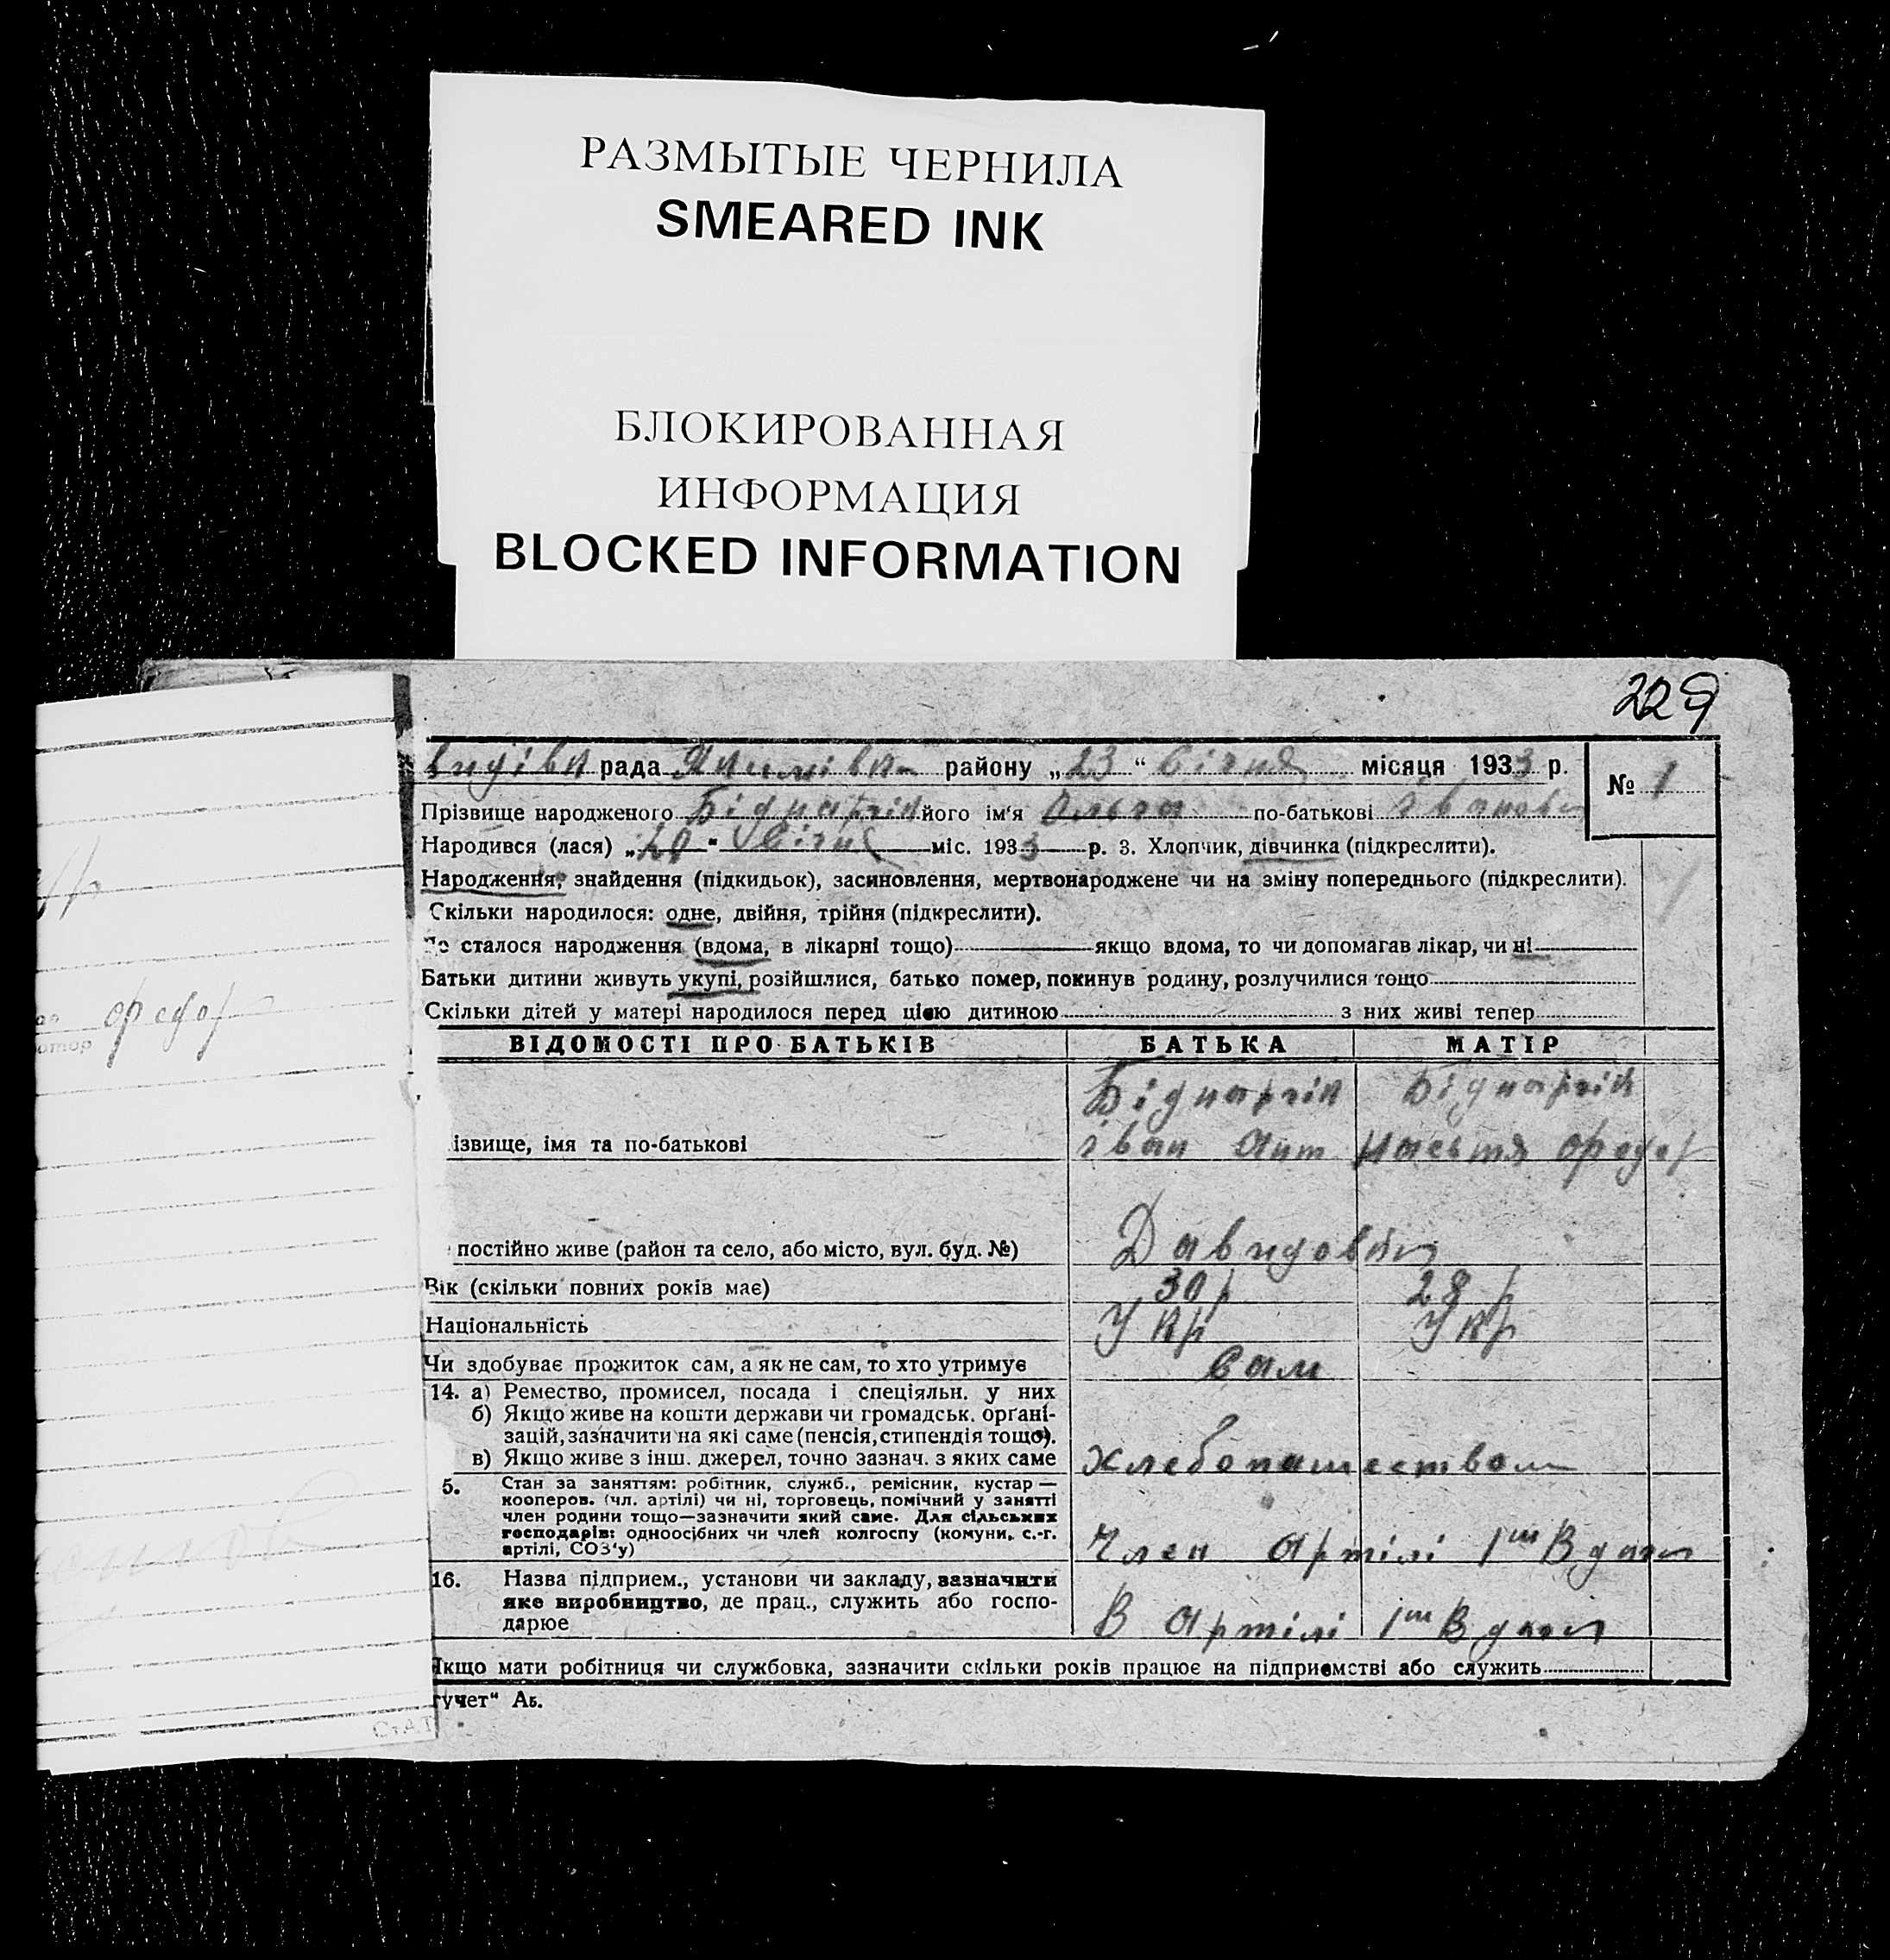 РАЗМЫТЫЕ ЧЕРНИЛА
SMEARED INK
БЛОКИРОВАННАЯ
ИНФОРМАЦИЯ
BLOCKED INFORMATION
229
рада района „23“ Січня місяця 1933 р.
№ 1
Прізвище народженого його ім'я Ольга по-батькові Іванов
Народився (лася) „20“ Січня міс. 1933 р. 3. Хлопчик, дівчинка (підкреслити).
Народження, знайдення (підкидьок), засиновлення, мертвонароджене чи на зміну попереднього (підкреслити).
Скільки народилося: одне, двійня, трійня (підкреслити).
сталося народження (вдома, в лікарні тощо) якщо вдома, то чи допомагав лікар, чи ні
Батьки дитини живуть укупі, розійшлися, батько помер, покинув родину, розлучилися тощо
Скільки дітей у матері народилося перед цією дитиною з них живі тепер
ВІДОМОСТІ ПРО БАТЬКІВ БАТЬКА МАТІР
ізвище, імя та по-батькові Іван Ант Настя Федор
постійно живе (район та село, або місто, вул. буд. №)
Вік (скільки повних років має) 30 р 28 р
Національність Укр Укр
Чи здобуває прожиток сам, а як не сам, то хто утримує Сам
14. а) Ремество, промисел, посада і спеціяльн. у них
б) Якщо живе на кошти держави чи громадськ. органі-
зацій, зазначити на які саме (пенсія, стипендія тощо).
в) Якщо живе з інш. джерел, точно зазнач. з яких саме Хлебопашеством
5. Стан за заняттям: робітник, служб., ремісник, кустар —
кооперов. (чл. артілі) чи ні, торговець, помічний у занятті
член родини тощо—зазначити який саме. Для сільських
господарів: одноосібних чи член колгоспу (комуни, с.-г.
артілі, СОЗ'у) Член Артілі
16. Назва підприєм., установи чи закладу, зазначити
яке виробництво, де прац., служить або госпо-
дарює В Артілі
Якщо мати робітниця чи службовка, зазначити скільки років працює на підприємстві або служить
учет“ Аб.